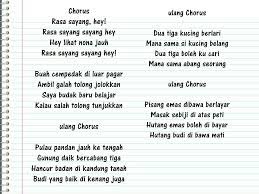 Chorus
Rasa sayang, hey!
Rasa sayang sayang hey
Hey lihat nona jauh
Rasa sayang sayang hey!
Buah cempedak di luar pagar
Ambil galah tolong jolokkan
Saya budak baru belajar
Kalau salah tolong tunjukkan
ulang Chorus
Pulau pandan jauh ke tengah
Gunung daik bercabang tiga
Hancur badan di kandung tanah
Budi yang baik di kenang juga
ulang Chorus
Dua tiga kucing berlari
Mana sama si kucing belang
Dua tiga boleh ku cari
Mana sama abang seorang
ulang Chorus
Pisang emas dibawa berlayar
Masak sebiji di atas peti
Hutang emas boleh di bayar
Hutang budi di bawa mati